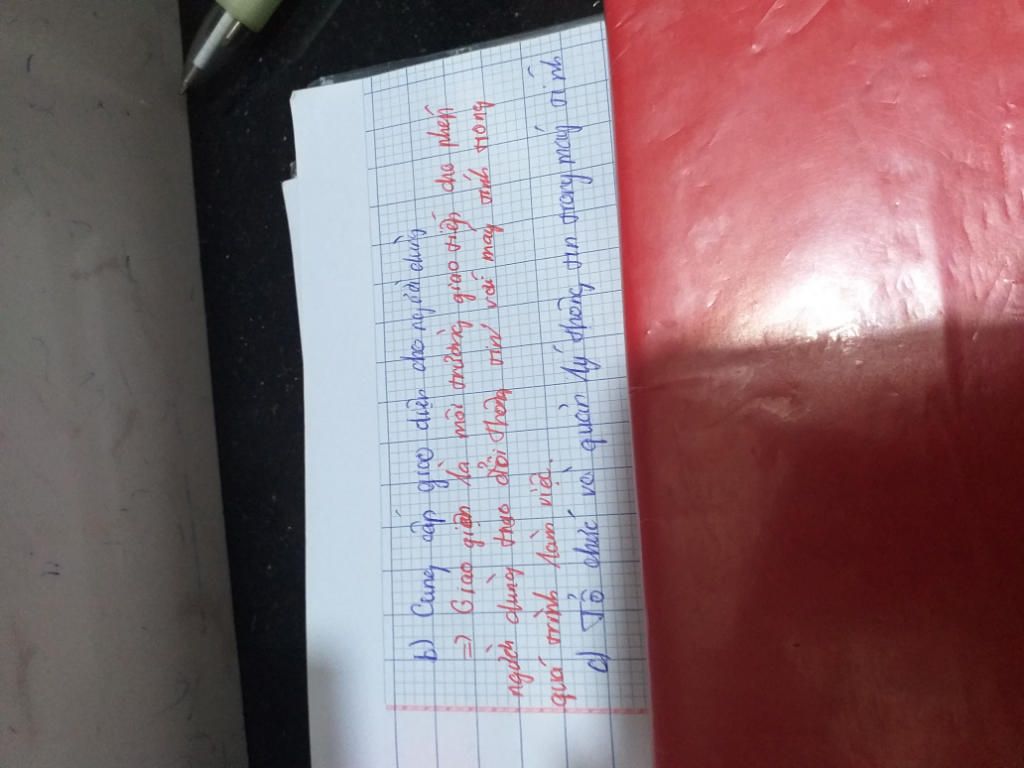 b) Cung cấp giao diện cho người dùng
=) Giao giện là môi trường giao tiếp cho phép
người dùng trao đổi thông tin với máy tính trong
quá trình làm việc.
c) Tổ chức và quản lý thông tin trong máy tính